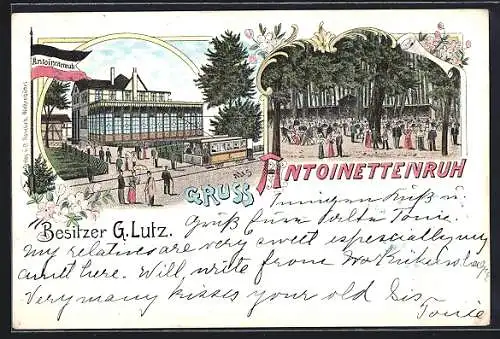 Antoinettenruh
GRUSS AUS ANTOINETTENRUH
Besitzer G. Lutz.
Innigen Kuß u.
Gruß Tonie.
My relatives are very sweet especially my
aunt here. Will write from
Very many kisses your old Sis
Tonie